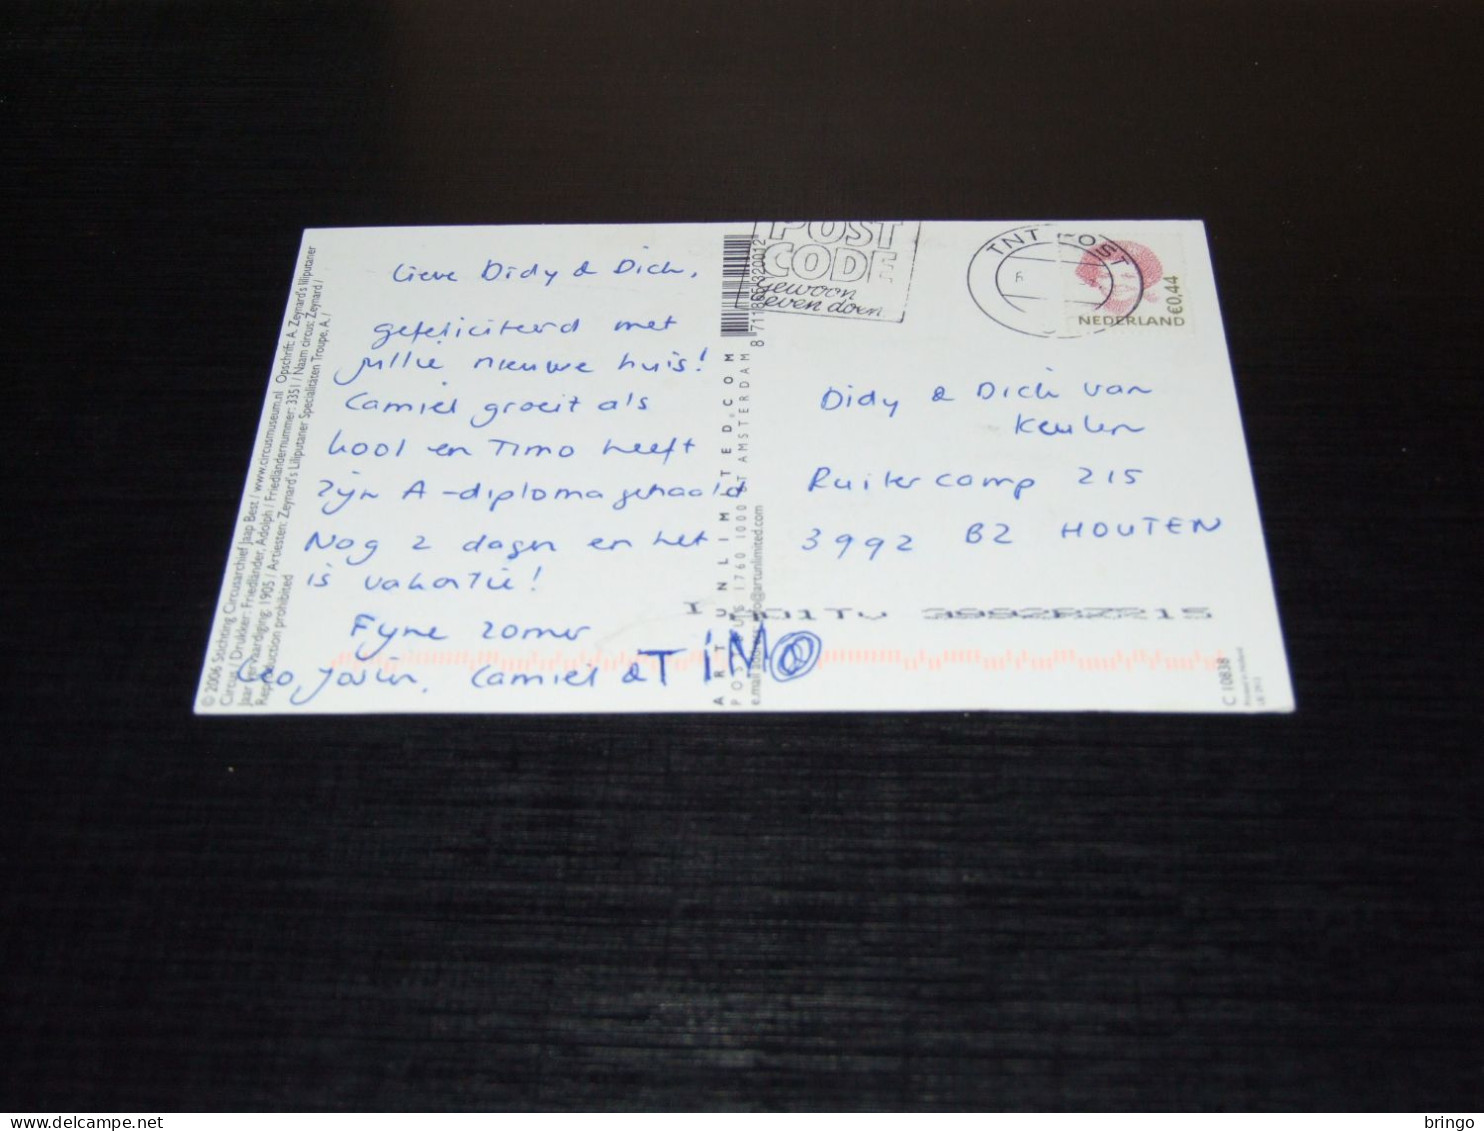 © 2006 Stichting Circusarchief Jaap Best / www.circusmuseum.nl Opschrift: A. Zeynard's liliputaner
Circus / Drukker: Friedländer, Adolph / Friedländernummer: 3351 / Naam circus: Zeynard /
Jaar vervaardiging: 1905 / Artiesten: Zeynard's Liliputaner Specialitäten Troupe, A. /
Reproduction prohibited
Lieve Didy & Dick,
gefeliciteerd met
jullie nieuwe huis!
Camiel groeit als
kool en Timo heeft
zijn A-diploma gehaald
Nog 2 dagen en het
is vakantie!
Fijne zomer
Camiel & TIMO
8 711865 320012
ART UNLIMITED.COM
POSTBUS 1760 1000 BT AMSTERDAM
e.mail address: info@artunlimited.com
POST
CODE
gewoon
even doen.
TNT POST
NEDERLAND
€0,44
Didy & Dick van
Keulen
Ruitercamp 215
3992 BZ HOUTEN
C 10838
Printed in Holland
bringo